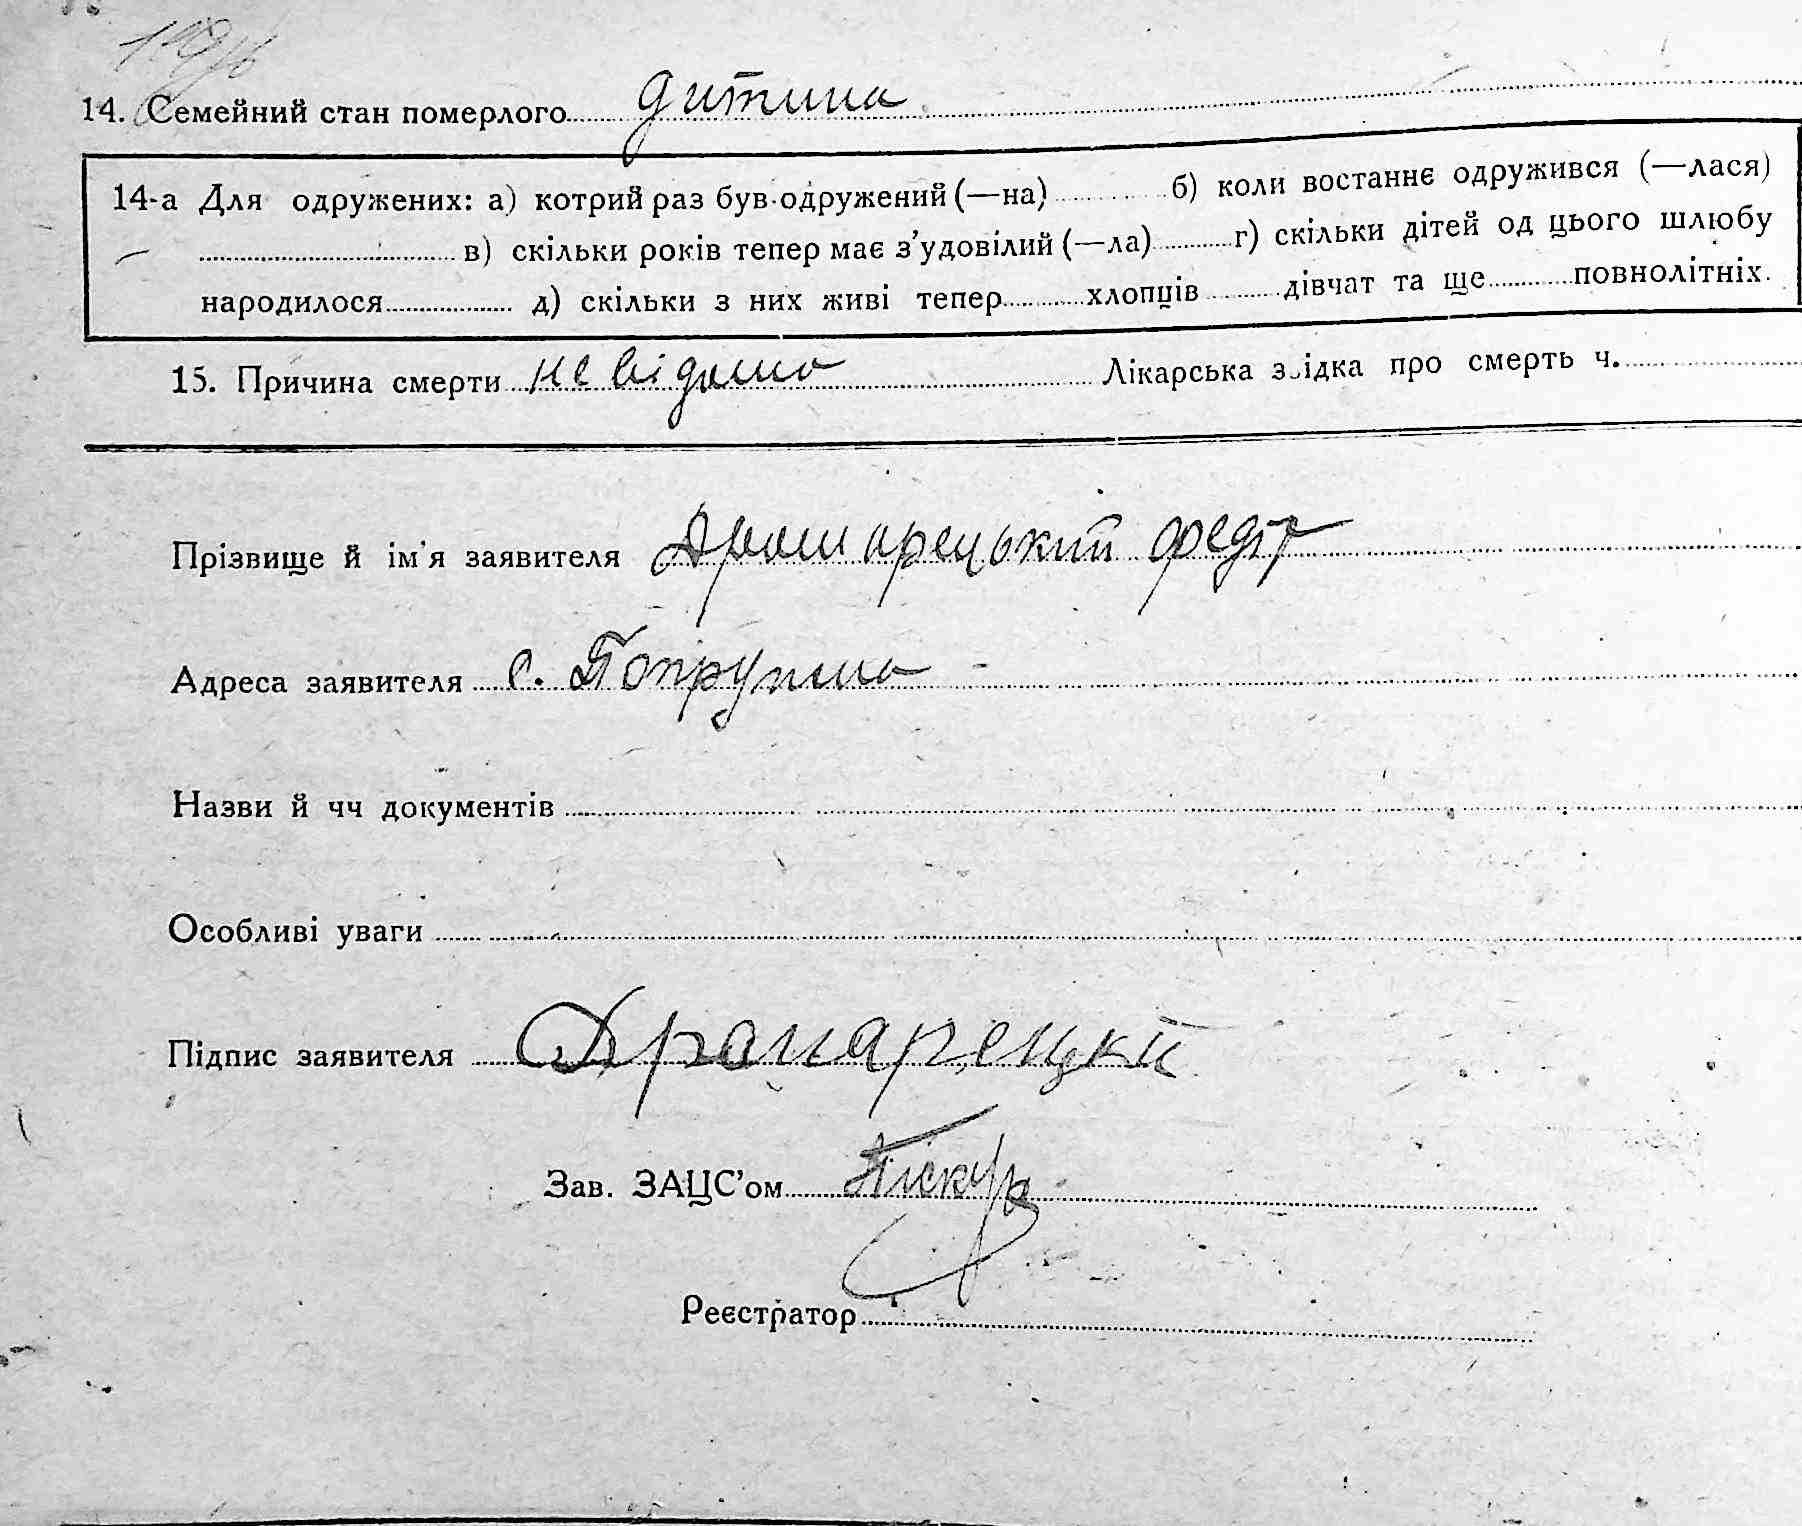 14. Семейний стан померлого дитина
14-а Для одружених: а) котрий раз був одружений (—на) б) коли востаннє одружився (—лася)
в) скільки років тепер має з’удовілий (—ла) г) скільки дітей од цього шлюбу
народилося д) скільки з них живі тепер хлопців дівчат та ще повнолітніх.
15. Причина смерти невідома Лікарська звідка про смерть ч.
Прізвище й ім’я заявителя Драмарецький Федір
Адреса заявителя с. Попружна
Назви й чч документів
Особливі уваги
Підпис заявителя Драмарецкий
Зав. ЗАЦС’ом
Реєстратор